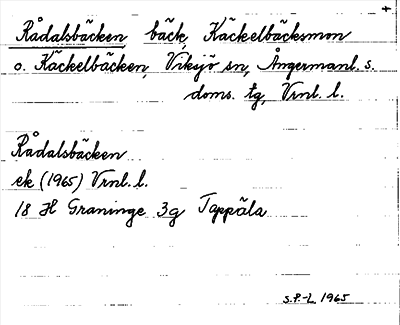 Rådalsbäcken, bäck, Käckelbäcksmon
o. Käckelbäcken, Viksjö sn, Ångermanl. s.
doms. tg, Vrnl. l.
Rådalsbäcken
ek (1965) Vrnl. l.
18 H Graninge 3g Tappäla
S.P-L 1965